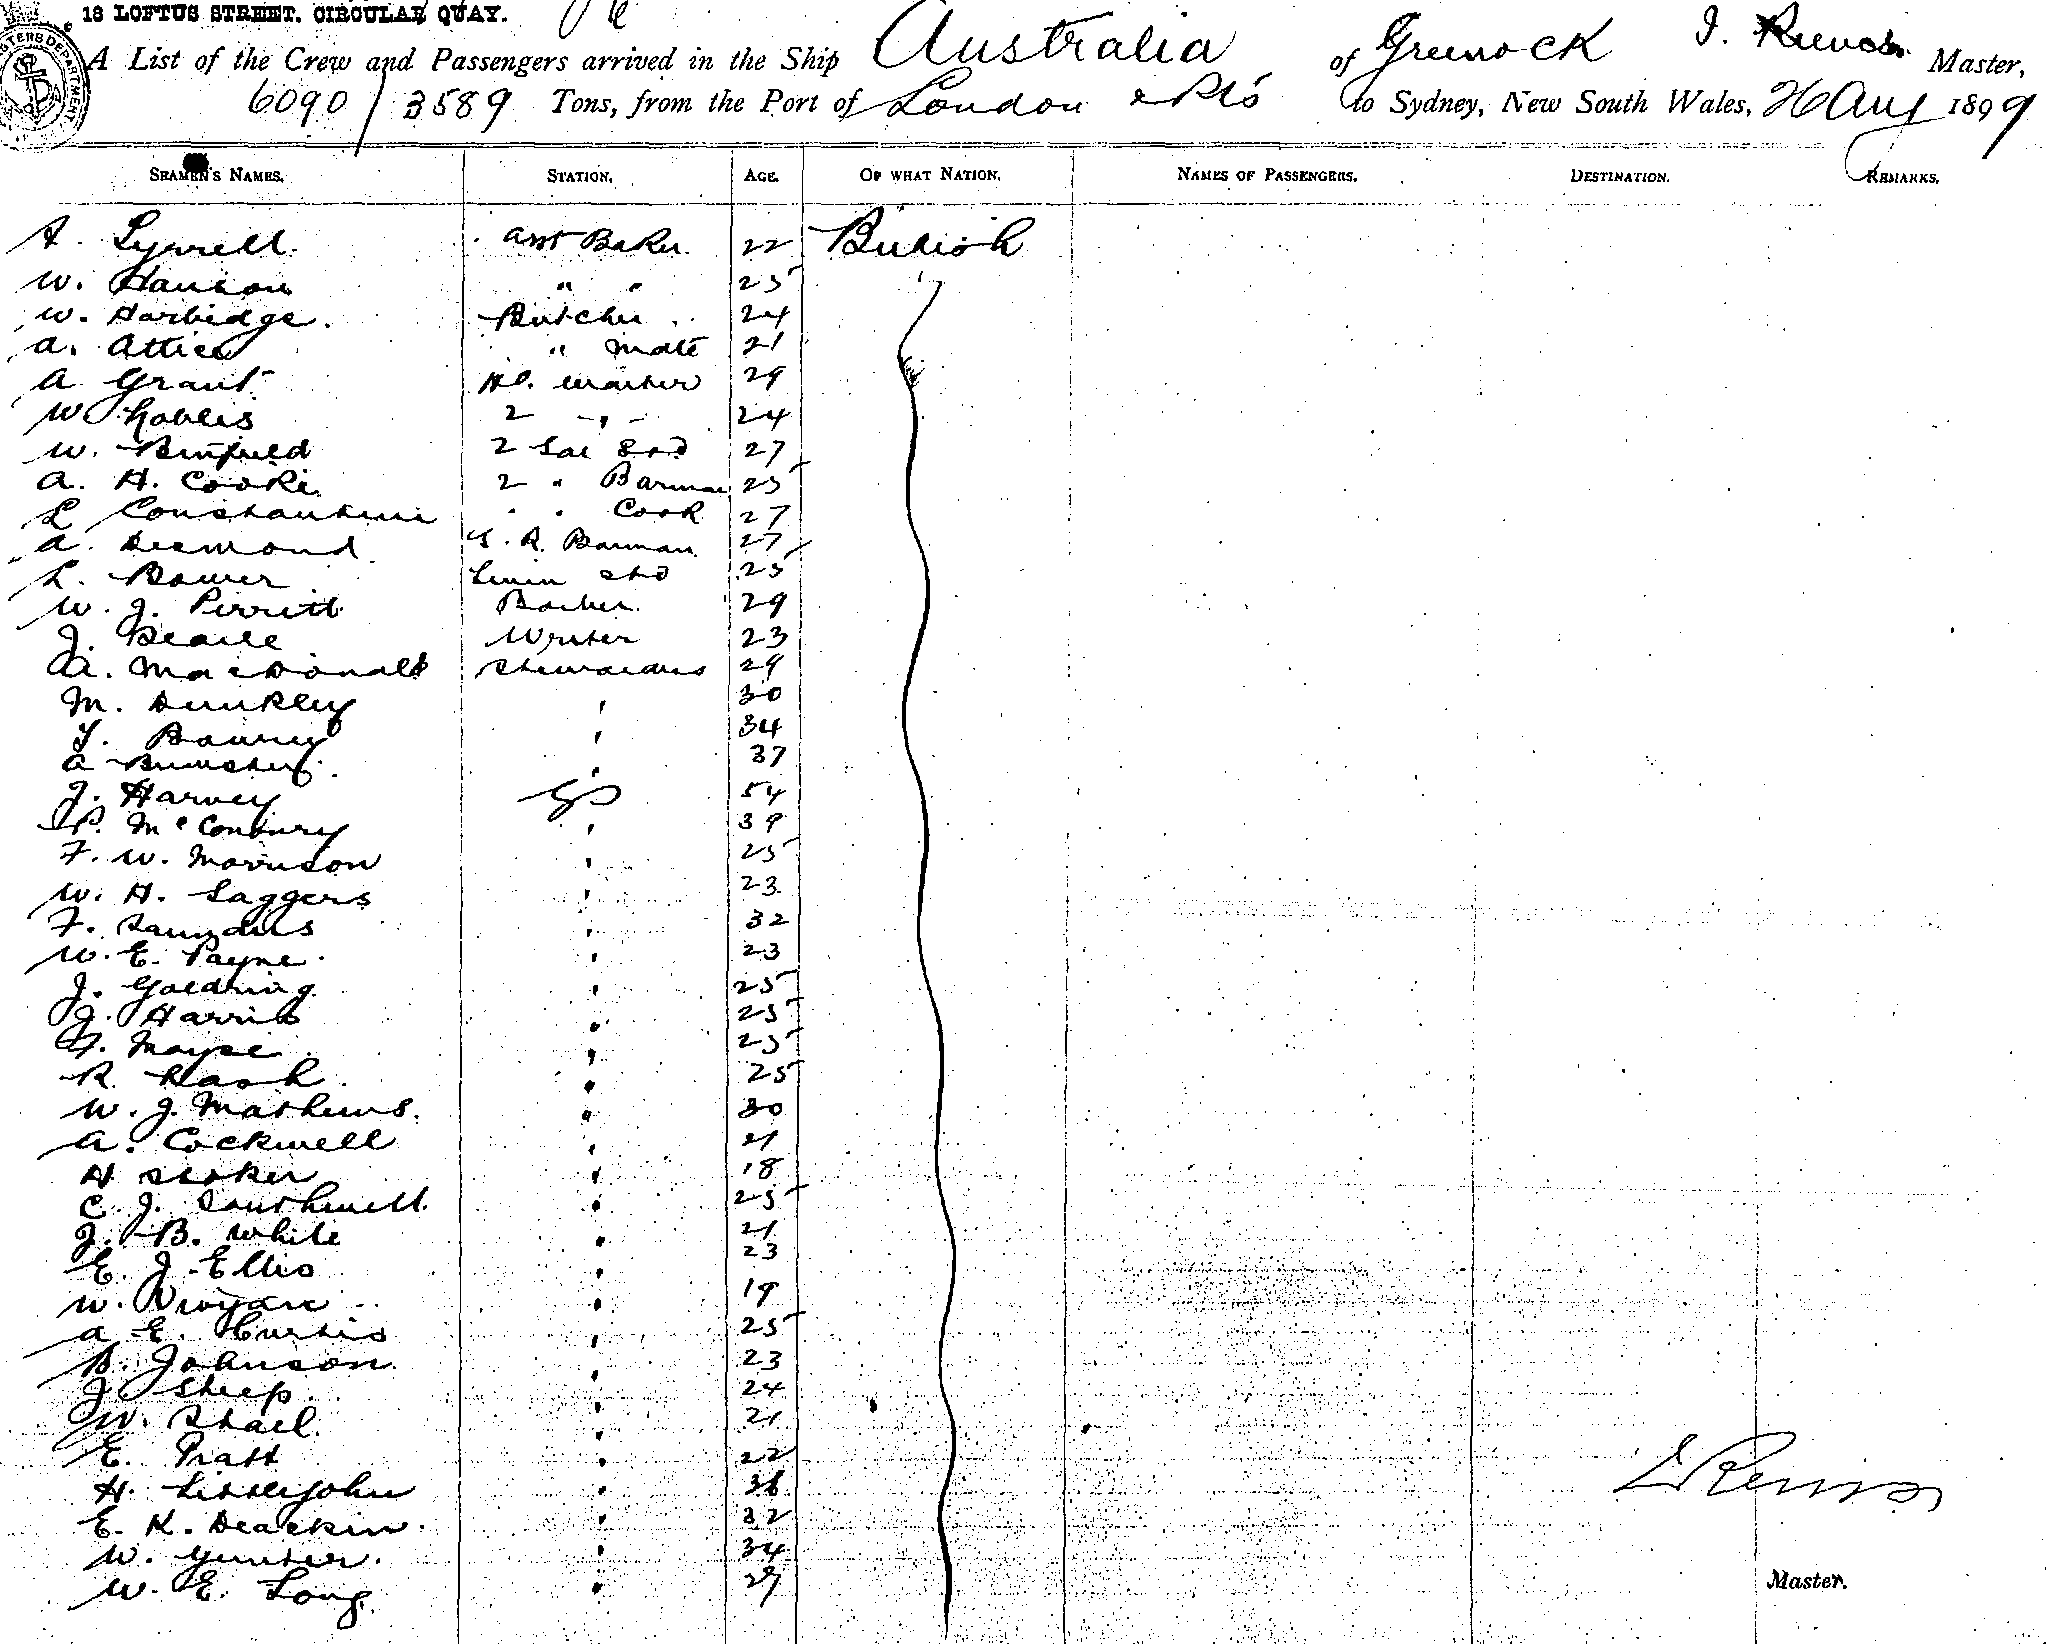 18 LOFTUS STREET. CIRCULAR QUAY.
A List of the Crew and Passengers arrived in the Ship Australia of Greenock Master,
6090/3589 Tons, from the Port of London & Pts to Sydney, New South Wales, 26 Aug 1899
SEAMEN'S NAMES. STATION. AGE. OF WHAT NATION. NAMES OF PASSENGERS. DESTINATION. REMARKS.
A. Tyrrell Asst Baker 22 British
W. Hanson " " 25
W. Harbidge. Butcher 24
A. Attice " Mate 21
A Grant Hd. Waiter 29
W 2 " 24
W. Binfield 2 Sal Std 27
A. H. Cooke 2 " Barman 25
L Constantine " " Cook 27
A. Desmond S. R. Barman 27
L. Bower Linen Std 25
W. J. Perritt Barber 29
J. Searle Writer 23
A. MacDonald Stewardess 29
M. Dunkley " 30
Bowrey " 34
A " 37
J. Harvey GS 54
P. McConbury " 39
F. W. Morrison " 25
W. H. Saggers " 23
F. Saunders " 32
W. E. Payne " 23
J. Goldring " 25
J. Harris " 25
Mayse " 25
R. Nash " 25
W. J. Mathews. " 30
A. Cockwell " 21
H Stoker " 18
C. J. Southwell " 25
J. B. White " 21
E. J. Ellis " 23
W. " 19
A E. Curtis " 25
B. Johnson " 23
J Sleep " 24
W. " 21
E. Pratt " 22
H. Littlejohn " 36
E. K. Deackin " 32
W. Gunter. " 34
W. E. Long. " 27
Master.